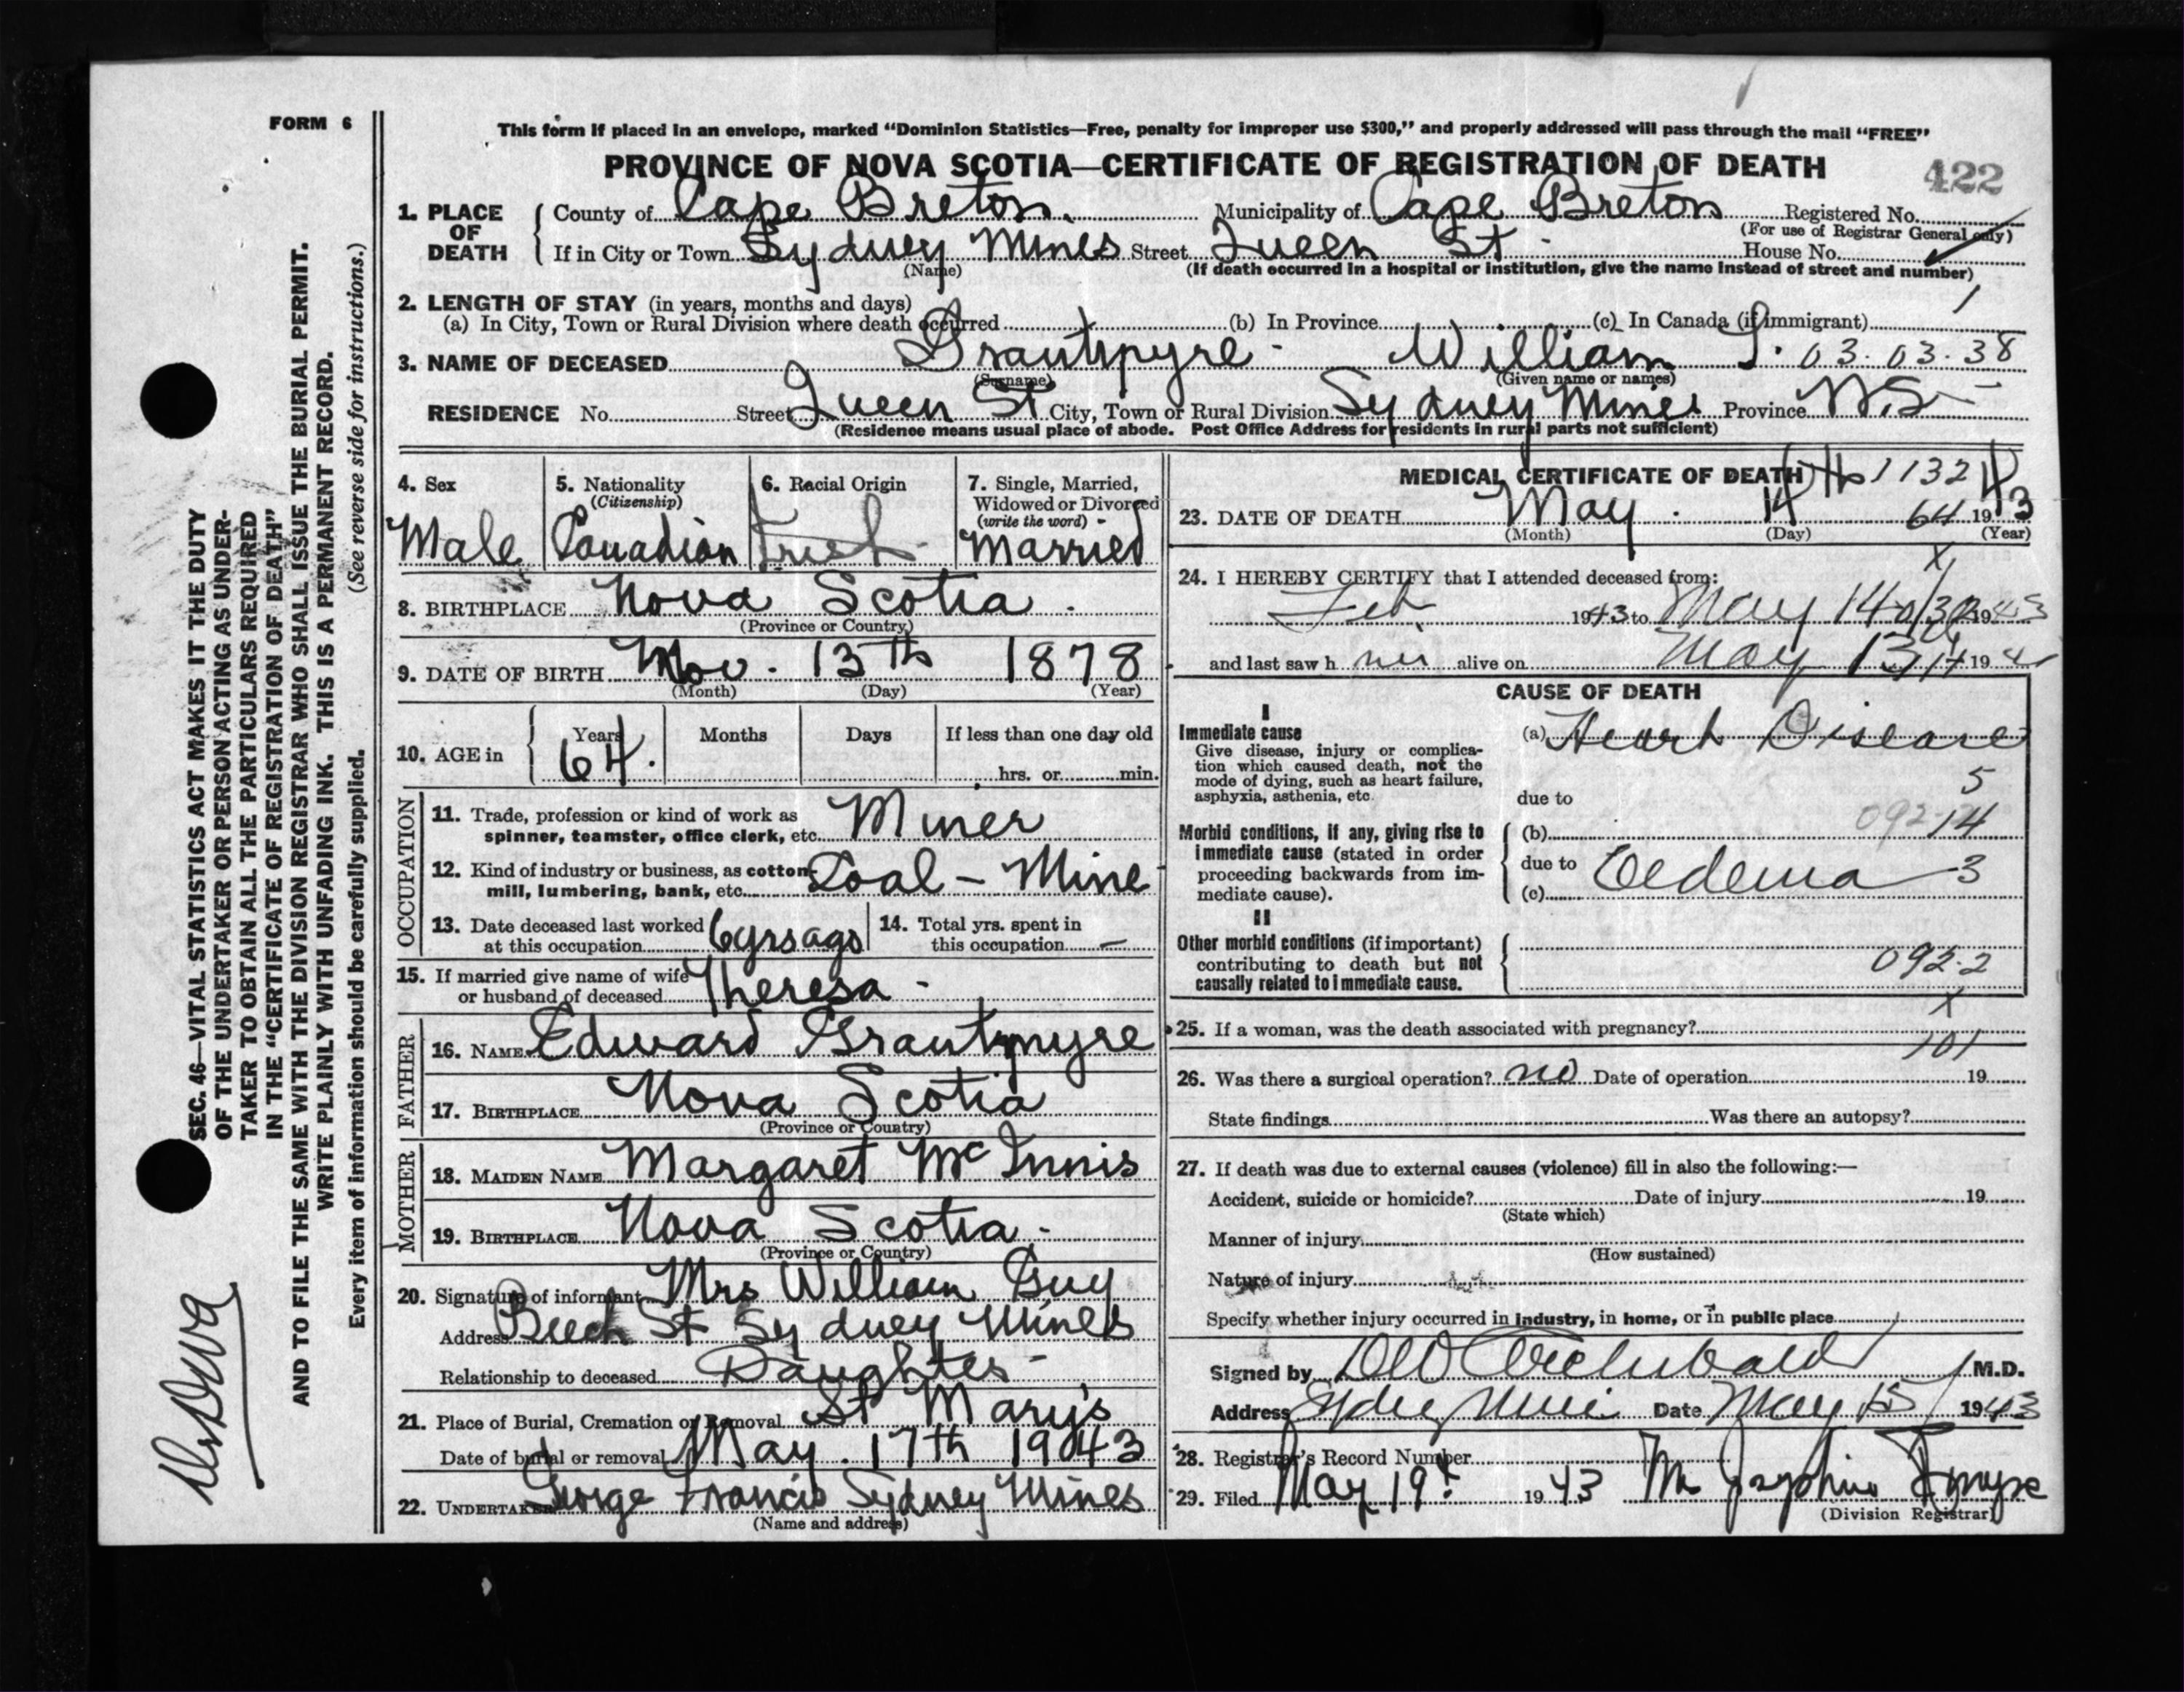 FORM 6
This form if placed in an envelope, marked “Dominion Statistics—Free, penalty for improper use $300,” and properly addressed will pass through the mail “FREE”
PROVINCE OF NOVA SCOTIA—CERTIFICATE OF REGISTRATION OF DEATH
422
1. PLACE OF DEATH County of Cape Breton. Municipality of Cape Breton Registered No.
(For use of Registrar General only)
If in City or Town Sydney Mines Street Queen St. House No.
(Name) (If death occurred in a hospital or institution, give the name instead of street and number)
2. LENGTH OF STAY (in years, months and days)
(a) In City, Town or Rural Division where death occurred (b) In Province (c) In Canada (if immigrant)
3. NAME OF DECEASED Grantmyre - William 03.03.38
(Surname) (Given name or names)
RESIDENCE No. Street Queen St City, Town or Rural Division Sydney Mines Province N.S.
(Residence means usual place of abode. Post Office Address for residents in rural parts not sufficient)
4. Sex 5. Nationality 6. Racial Origin 7. Single, Married,
(Citizenship) Widowed or Divorced
(write the word)
Male Canadian Irish Married
8. BIRTHPLACE Nova Scotia.
(Province or Country)
9. DATE OF BIRTH Nov. 13th 1878
(Month) (Day) (Year)
10. AGE in Years Months Days If less than one day old
64. hrs. or min.
OCCUPATION
11. Trade, profession or kind of work as
spinner, teamster, office clerk, etc. Miner
12. Kind of industry or business, as cotton
mill, lumbering, bank, etc. Coal - Mine
13. Date deceased last worked
at this occupation 6 yrs ago
14. Total yrs. spent in
this occupation —
15. If married give name of wife
or husband of deceased Theresa -
FATHER
16. NAME Edward Grantmyre
17. BIRTHPLACE Nova Scotia
(Province or Country)
MOTHER
18. MAIDEN NAME Margaret McInnis
19. BIRTHPLACE Nova Scotia.
(Province or Country)
20. Signature of informant Mrs William Guy
Address Beech St Sydney Mines
Relationship to deceased Daughter -
21. Place of Burial, Cremation or Removal St Mary's
Date of burial or removal May. 17th 1943
22. UNDERTAKER George Francis Sydney Mines
(Name and address)
MEDICAL CERTIFICATE OF DEATH 1132
23. DATE OF DEATH May. 14 64 1943
(Month) (Day) (Year)
24. I HEREBY CERTIFY that I attended deceased from:
Feb 1943 to May 14 1943
and last saw h im alive on May 13 19
CAUSE OF DEATH
I
Immediate cause
Give disease, injury or complica-
tion which caused death, not the
mode of dying, such as heart failure,
asphyxia, asthenia, etc.
(a) Heart Disease
5
due to
Morbid conditions, if any, giving rise to
immediate cause (stated in order
proceeding backwards from im-
mediate cause).
(b) 092 14
due to Oedema 3
(c)
II
Other morbid conditions (if important)
contributing to death but not
causally related to immediate cause.
092.2
x
25. If a woman, was the death associated with pregnancy?
101
26. Was there a surgical operation? no Date of operation 19
State findings Was there an autopsy?
27. If death was due to external causes (violence) fill in also the following:—
Accident, suicide or homicide? Date of injury 19
(State which)
Manner of injury
(How sustained)
Nature of injury
Specify whether injury occurred in industry, in home, or in public place
Signed by Archibald M.D.
Address Sydney Mines Date May 15 1943
28. Registrar's Record Number
29. Filed May 19 1943
(Division Registrar)
SEC. 46—VITAL STATISTICS ACT MAKES IT THE DUTY
OF THE UNDERTAKER OR PERSON ACTING AS UNDER-
TAKER TO OBTAIN ALL THE PARTICULARS REQUIRED
IN THE “CERTIFICATE OF REGISTRATION OF DEATH”
AND TO FILE THE SAME WITH THE DIVISION REGISTRAR WHO SHALL ISSUE THE BURIAL PERMIT.
WRITE PLAINLY WITH UNFADING INK. THIS IS A PERMANENT RECORD.
Every item of information should be carefully supplied. (See reverse side for instructions.)